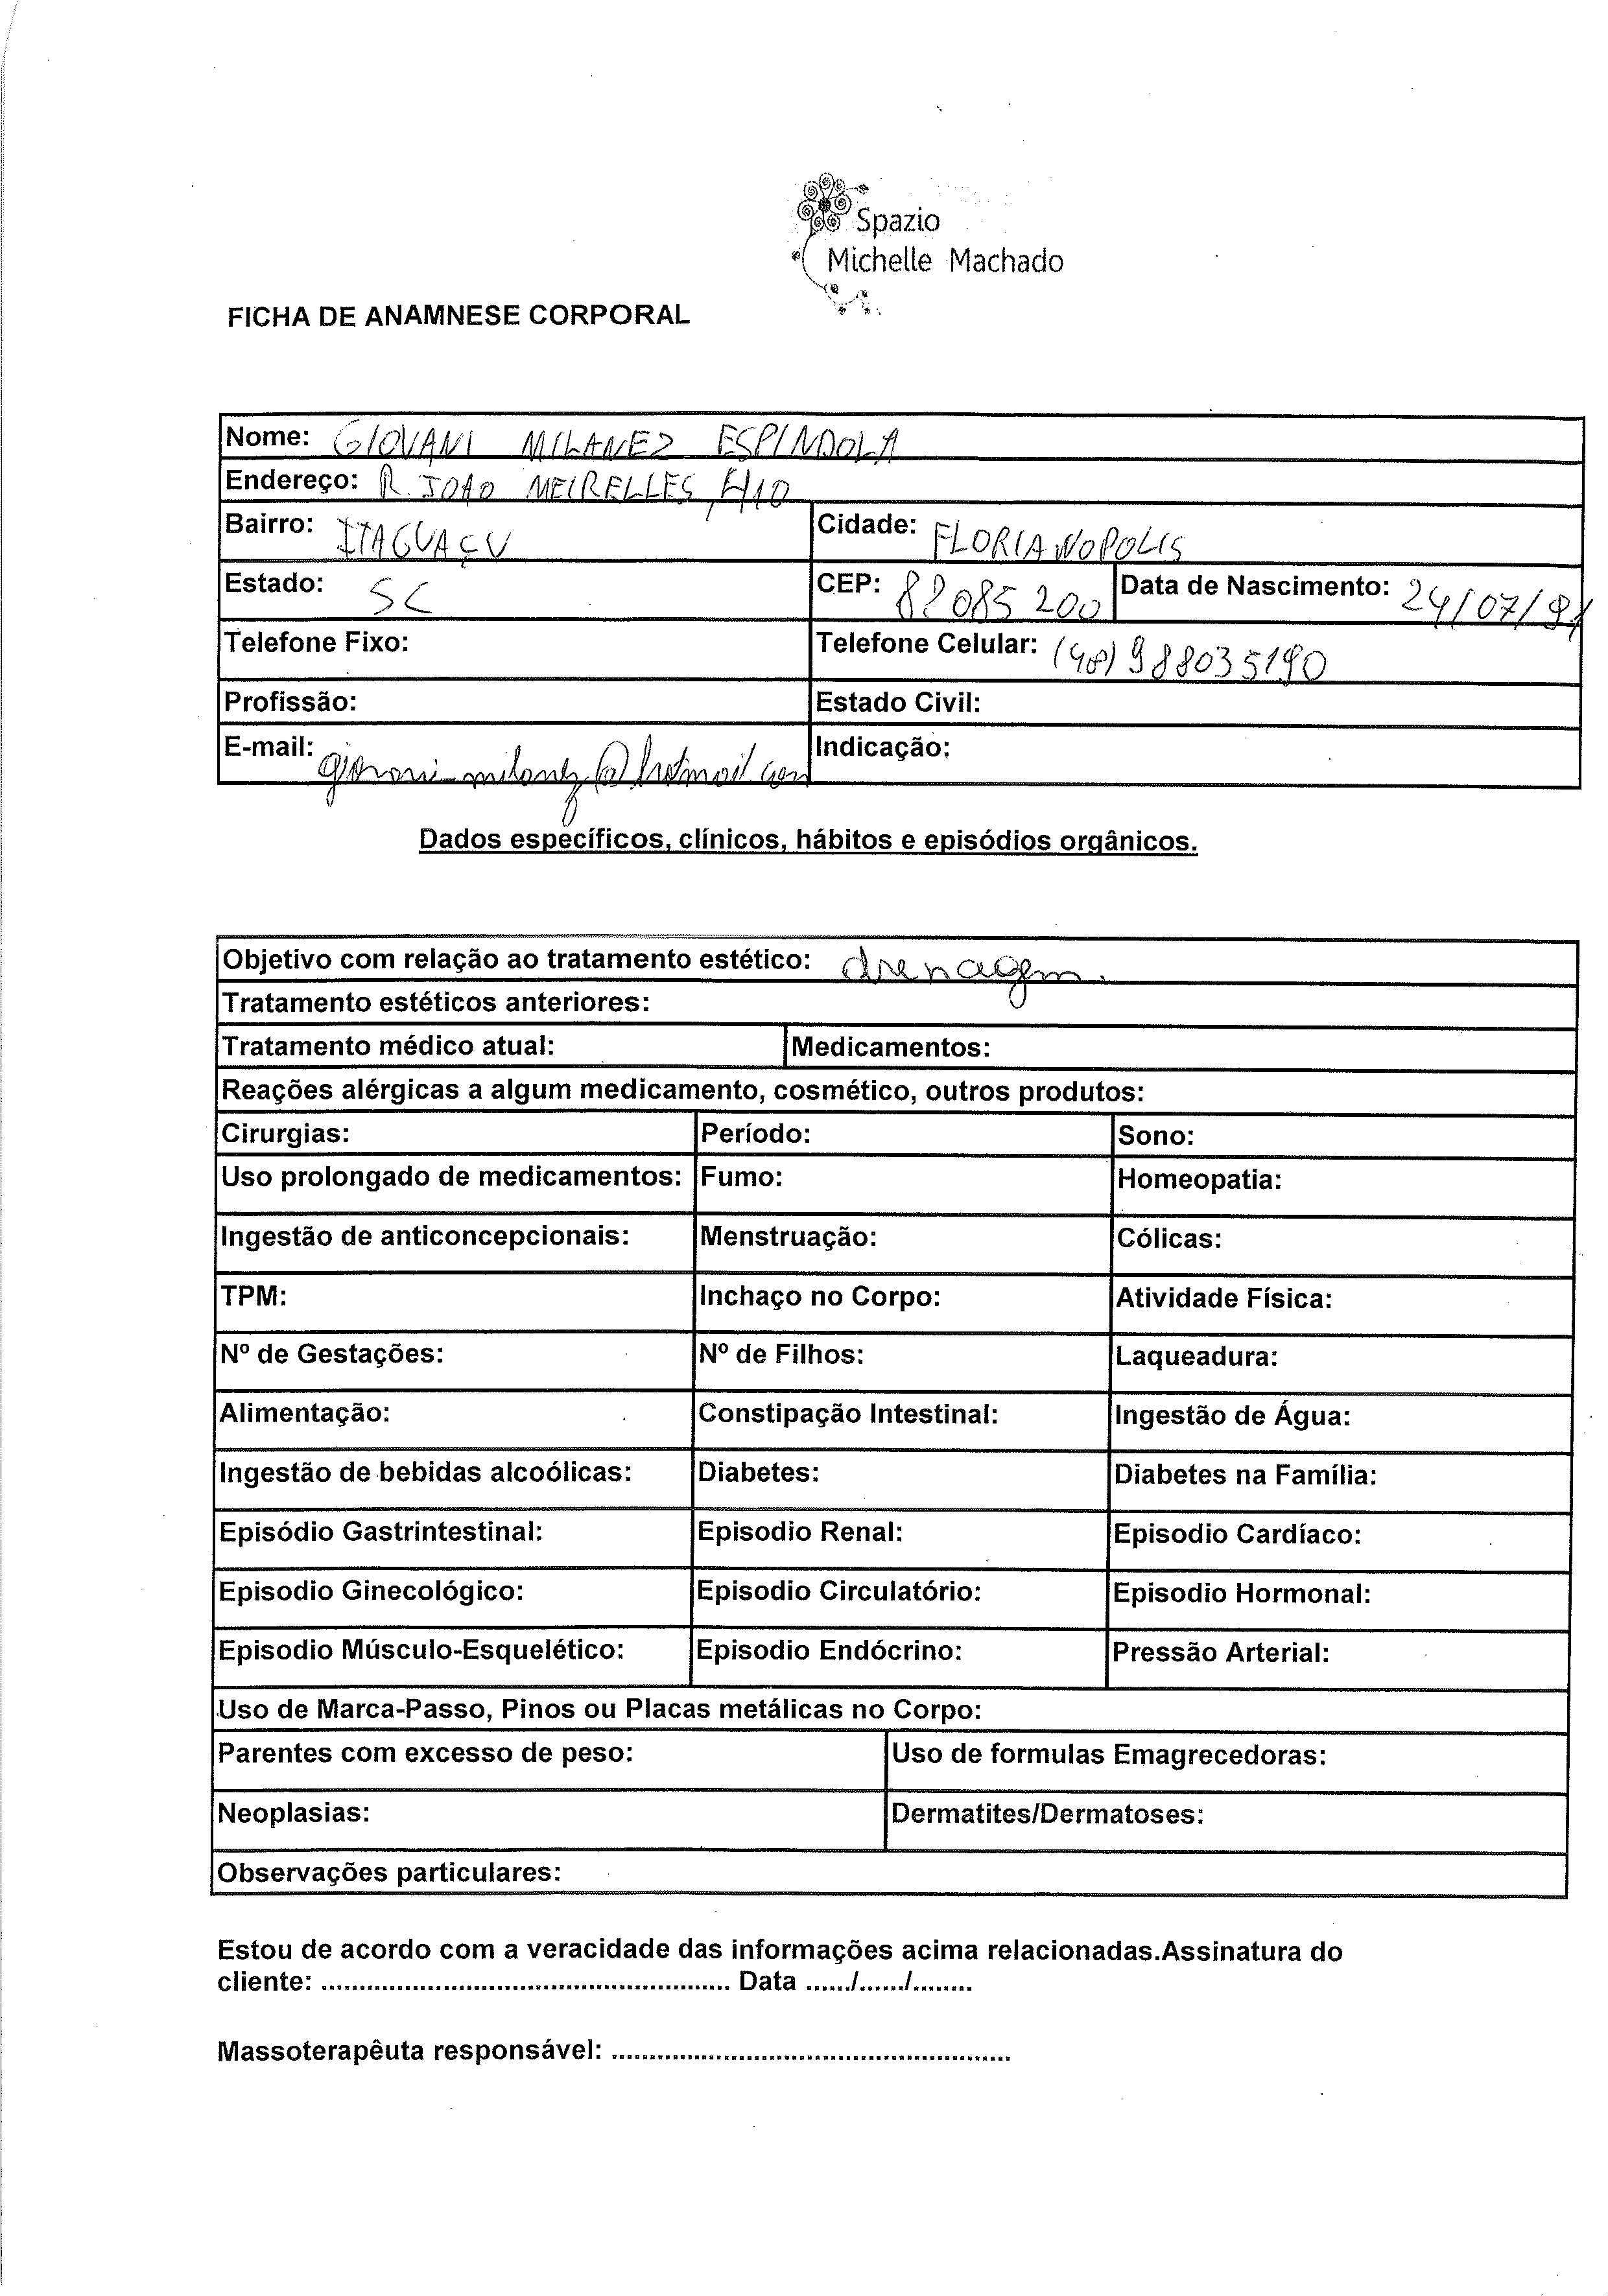 Spazio
Michelle Machado
FICHA DE ANAMNESE CORPORAL
Nome: GIOVANI MILANEZ ESPINDOLA
Endereço: R. JOAO MEIRELLES, 410
Bairro: ITAGUAÇU Cidade: FLORIANOPOLIS
Estado: SC CEP: 88085 200 Data de Nascimento: 24/07/91
Telefone Fixo: Telefone Celular: (48) 988035190
Profissão: Estado Civil:
E-mail: giovani_milanez@hotmail.com Indicação:
Dados específicos, clínicos, hábitos e episódios orgânicos.
Objetivo com relação ao tratamento estético: drenagem.
Tratamento estéticos anteriores:
Tratamento médico atual: Medicamentos:
Reações alérgicas a algum medicamento, cosmético, outros produtos:
Cirurgias: Período: Sono:
Uso prolongado de medicamentos: Fumo: Homeopatia:
Ingestão de anticoncepcionais: Menstruação: Cólicas:
TPM: Inchaço no Corpo: Atividade Física:
Nº de Gestações: Nº de Filhos: Laqueadura:
Alimentação: Constipação Intestinal: Ingestão de Água:
Ingestão de bebidas alcoólicas: Diabetes: Diabetes na Família:
Episódio Gastrintestinal: Episodio Renal: Episodio Cardíaco:
Episodio Ginecológico: Episodio Circulatório: Episodio Hormonal:
Episodio Músculo-Esquelético: Episodio Endócrino: Pressão Arterial:
Uso de Marca-Passo, Pinos ou Placas metálicas no Corpo:
Parentes com excesso de peso: Uso de formulas Emagrecedoras:
Neoplasias: Dermatites/Dermatoses:
Observações particulares:
Estou de acordo com a veracidade das informações acima relacionadas.Assinatura do
cliente: ...................................................... Data ....../....../........
Massoterapêuta responsável: .....................................................